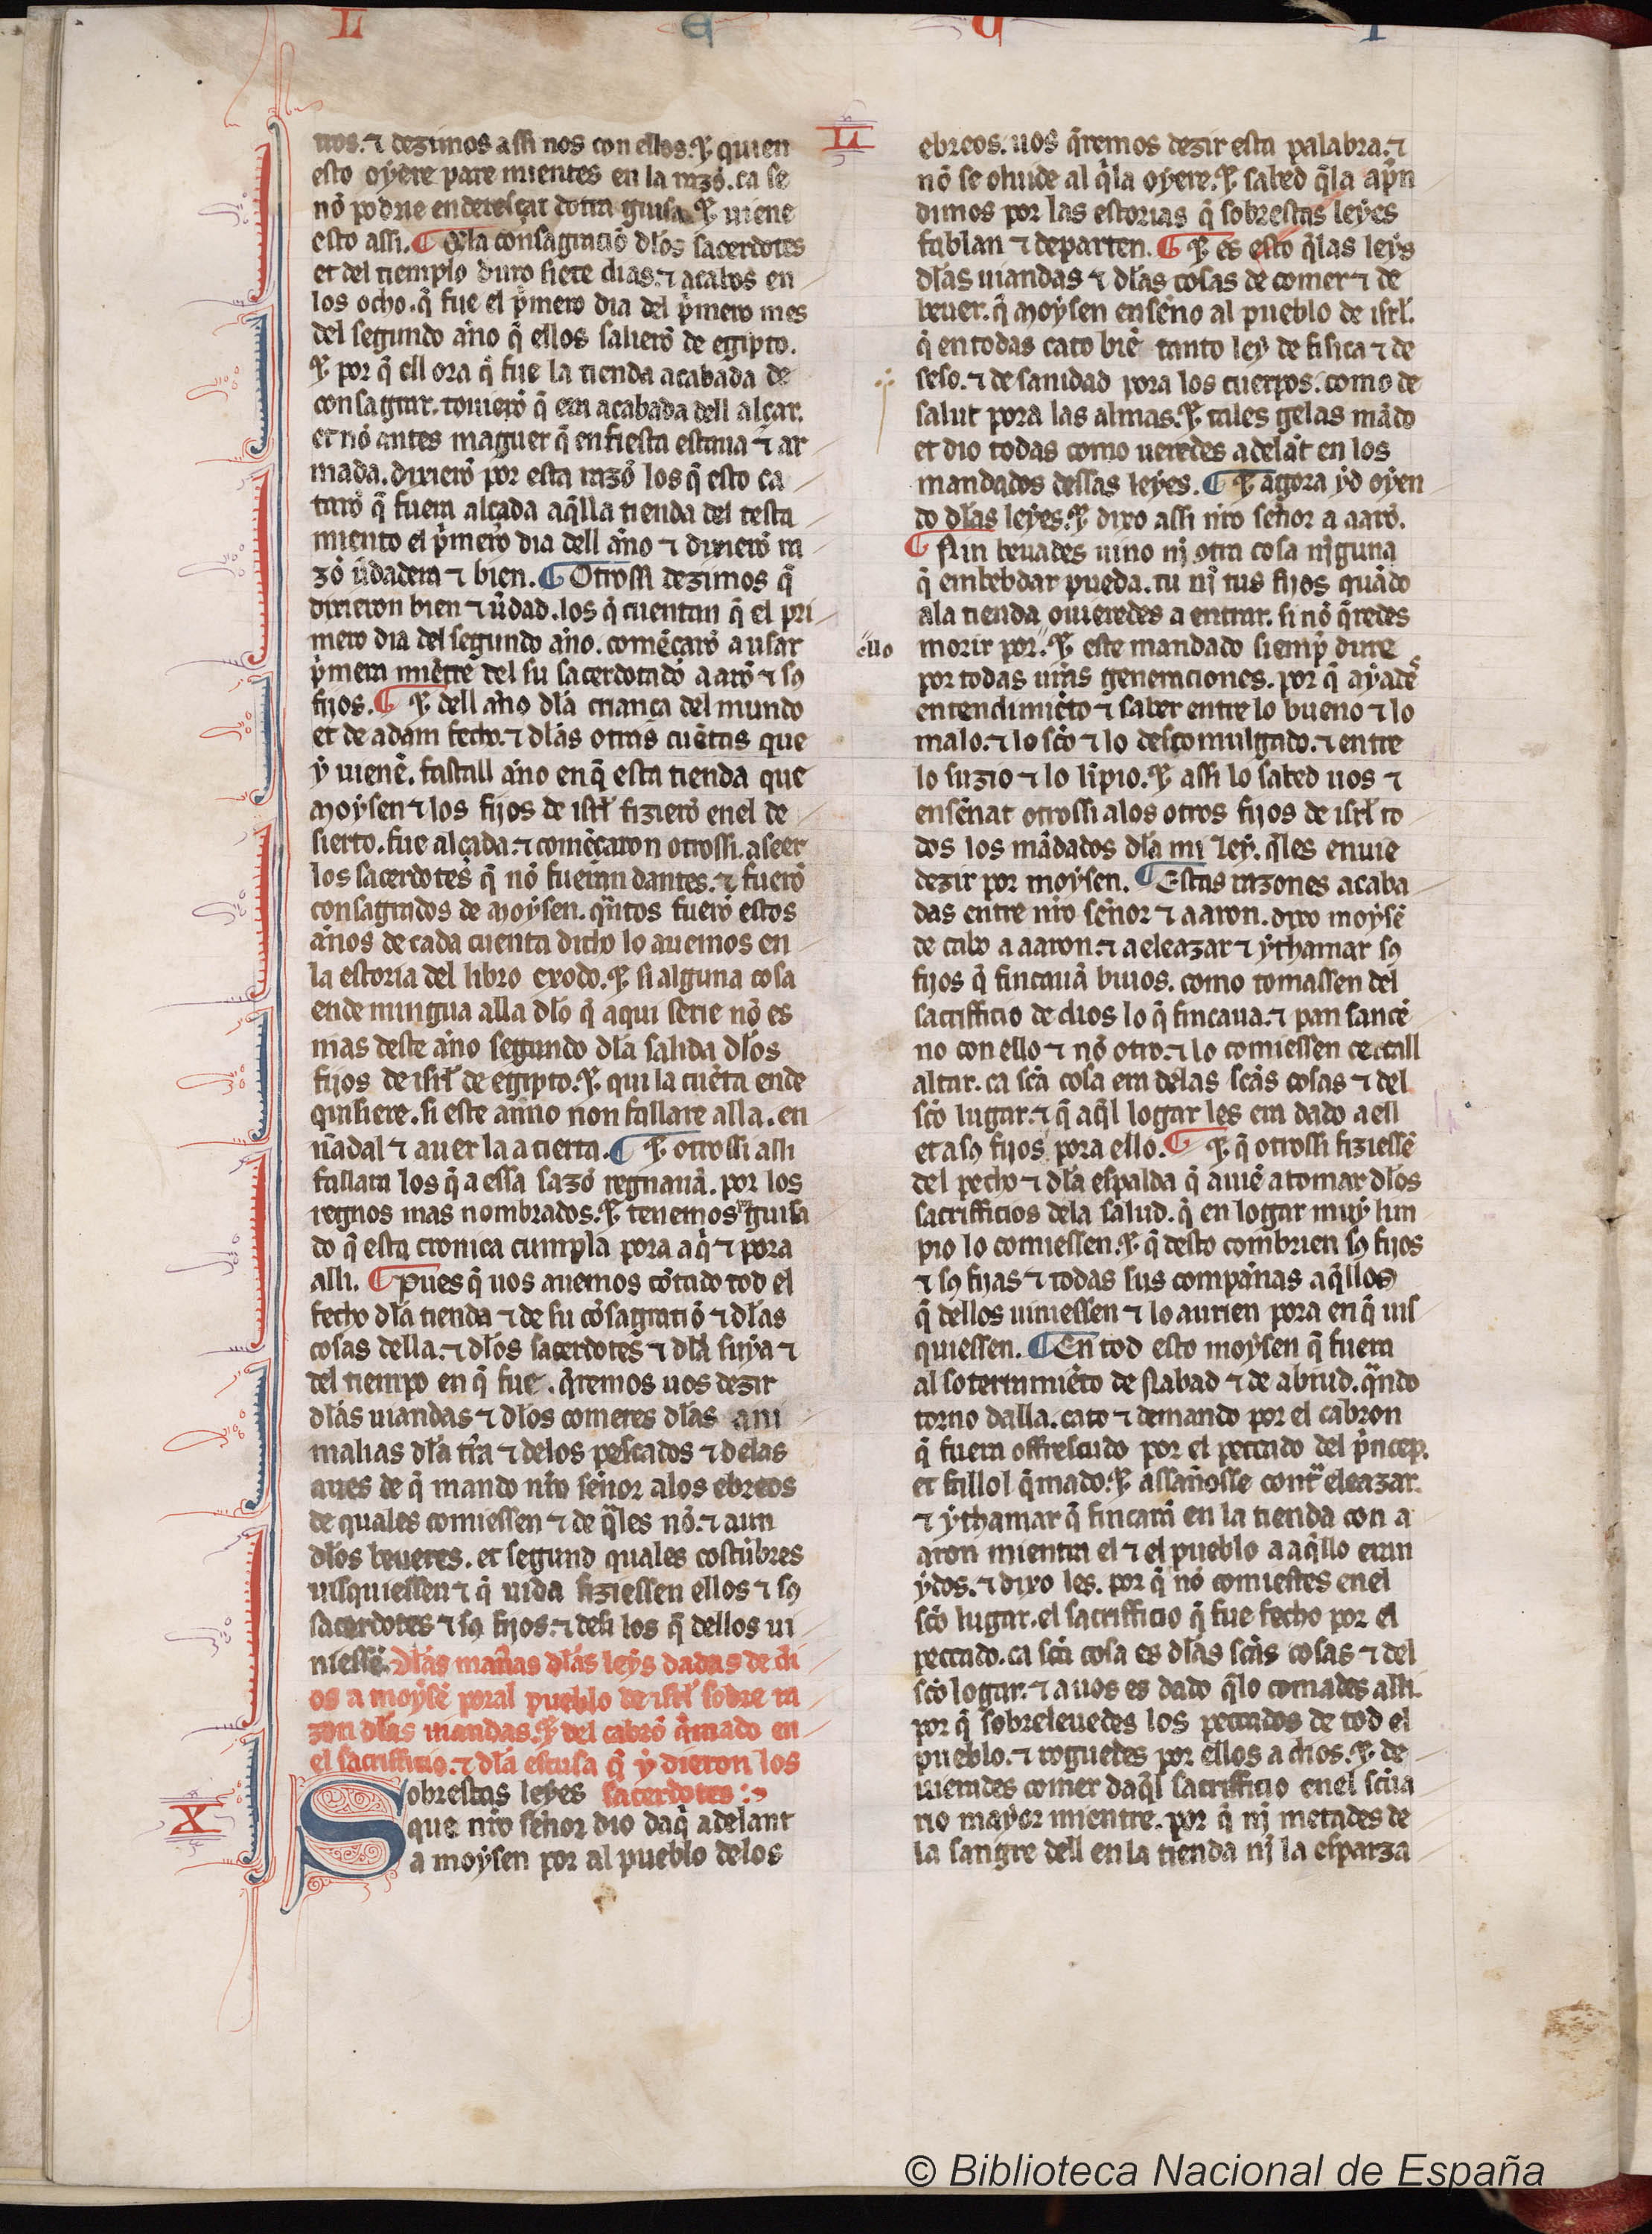 L E U I
nos. ⁊ dezimos assi nos con ellos. ⁊ quien
esto oyere pare mientes en la razō. ca se
nō podrie enderesçar dotra guisa. ⁊ uiene
esto assi. ¶ Q̄ la consagraciō dlos sacerdotes
et del tiemplo duro siete dias. ⁊ acabos en
los ocho. q̄ fue el p̍mero dia del p̍mero mes
del segundo anno q̄ ellos salierō de egipto.
⁊ por q̄ ell ora q̄ fue la tienda acabada de
consagrar. touierō q̄ era acabada dell alçar.
et nō antes maguer q̄ enfiesta estaua ⁊ ar
mada. dixierō por esta razō los q̄ esto ca
tarō q̄ fuera alçada aq̄lla tienda del testa
miento el p̍mero dia dell año ⁊ dixierō ra
zō ũdadera ⁊ bien. ¶ Otrossi dezimos q̄
dixieron bien ⁊ ũdad. los q̄ cuentan q̄ el pri
mero dia del segundo año. comēçarō a usar
p̍mera miētre del su sacerdotado aarō ⁊ sꝯ
fijos. ¶ ⁊ dell año dla criança del mundo
et de adam fecho. ⁊ dlas otras cuētas que
ẏ uienē. fastall año en q̄ esta tienda que
moẏsen ⁊ los fijos de isrl̄ fizierō en el de
sierto. fue alçada. ⁊ comēçaron otrossi. a seer
los sacerdotes q̄ nō fueran dantes. ⁊ fuerō
consagrados de moẏsen. qᵃntos fuerō estos
años de cada cuenta dicho lo auemos en
la estoria del libro exodo. ⁊ si alguna cosa
ende mingua alla dlo q̄ aqui serie nō es
mas deste año segundo dla salida dlos
fijos de isrl̄ de egipto. ⁊ qui la cuēta ende
quisiere. si este anno non fallare alla. en
ñadal ⁊ auer la a cierta. ¶ ⁊ otrossi assi
fallara los q̄ a essa sazō regnauā. por los
regnos mas nombrados. ⁊ tenemos guisa
do q̄ esta cronica cumpla pora aq̍ ⁊ pora
alli. ¶ Pues q̄ uos auemos cōtado tod el
fecho dla tienda ⁊ de su cōsagratiō ⁊ dlas
cosas della. ⁊ dlos sacerdotes ⁊ dla suẏa ⁊
del tiempo en q̄ fue. q̄remos uos dezir
dlas uiandas ⁊ dlos comeres dlas ani
malias dla tr̄a ⁊ delos pescados ⁊ delas
aues de q̄ mando nr̄o señor alos ebreos
de quales comiessen ⁊ de qᵃles nō. ⁊ aun
dlos beueres. et segund quales costūbres
uisquiessen ⁊ q̄ uida fiziessen ellos ⁊ sꝯ
sacerdotes ⁊ sꝯ fijos. ⁊ desi los q̄ dellos ui
niessē. Dlas mañas dlas leẏs dadas de di
os a moẏsē poral pueblo de isrl̄ sobre ra
zon dlas uiandas. ⁊ del cabrō q̄mado en
el sacrifficio. ⁊ dla escusa q̄ ẏ dieron los
Sobrestas leyes sacerdotes:
que nr̄o señor dio daq̍ adelant
a moẏsen por al pueblo delos
X
LI
ebreos. uos q̄remos dezir esta palabra. ⁊
nō se oluide al q̄ la oyere. ⁊ sabed q̄ la apn̄
dimos por las estorias q̄ sobrestas leẏes
fablan ⁊ departen. ¶ ⁊ es esto q̄ las leẏs
dlas uiandas ⁊ dlas cosas de comer ⁊ de
beuer. q̄ moẏsen enseño al pueblo de isrl̄.
q̄ en todas cato biē tanto leẏ de fisica ⁊ de
seso. ⁊ de sanidad pora los cuerpos. como de
salut pora las almas. ⁊ tales gelas mādo
et dio todas como ueredes adelāt en los
mandados dessas leẏes. ¶ ⁊ agora ẏd oyen
do dlas leẏes. ⁊ dixo assi nr̄o señor a aarō.
¶ Nin beuades uino nj̄ otra cosa nj̄guna
q̄ embebdar pueda. tu nj̄ tus fijos quādo
ala tienda ouieredes a entrar. si nō q̄redes
euo morir por. ⁊ este mandado siemp̄ dure
por todas ur̄as generaciones. por q̄ aẏadēs
entendimiēto ⁊ saber entre lo bueno ⁊ lo
malo. ⁊ lo scō ⁊ lo descomulgado. ⁊ entre
lo suzio ⁊ lo līpio. ⁊ assi lo sabed uos ⁊
enseñat otrossi alos otros fijos de isrl̄ to
dos los mādados dla mi leẏ. q̄ les enuie
dezir por moẏsen. ¶ Estas razones acaba
das entre nr̄o señor ⁊ aaron. dixo moẏsē
de cabo a aaron. ⁊ a eleazar ⁊ ẏthamar sꝯ
fijos q̄ fincauā biuos. como tomassen del
sacrifficio de dios lo q̄ fincaua. ⁊ pan sancē
no con ello ⁊ nō otro. ⁊ lo comiessen cercall
altar. ca scā cosa era delas scās cosas ⁊ del
scō lugar. ⁊ q̄ aq̄l logar les era dado a ell
et a sꝯ fijos pora ello. ¶ ⁊ q̄ otrossi fiziessē
del pecho ⁊ dla espalda q̄ auiē a tomar dlos
sacrifficios dela salud. q̄ en logar muẏ lim
pio lo comiessen. ⁊ q̄ desto combrien sꝯ fijos
⁊ sꝯ fijas ⁊ todas sus compañas aq̄llos
q̄ dellos uiniessen ⁊ lo aurien pora en q̄ uis
quiessen. ¶ En tod esto moẏsen q̄ fuera
al soterramiēto de nabad ⁊ de abiud. qᵃndo
torno dalla. cato ⁊ demando por el cabron
q̄ fuera offresçudo por el peccado del p̍ncep.
et fallol q̄mado. ⁊ assañosse contᵃ eleazar.
⁊ ẏthamar q̄ fincarā en la tienda con a
aron mientra el ⁊ el pueblo a aq̄llo eran
ẏdos. ⁊ dixo les. por q̄ nō comiestes en el
scō lugar. el sacrifficio q̄ fue fecho por el
peccado. ca scā cosa es dlas scās cosas ⁊ del
scō logar. ⁊ a uos es dado q̄ lo comades alli.
por q̄ sobreleuedes los peccados de tod el
pueblo. ⁊ roguedes por ellos a dios. ⁊ de
uierades comer daq̄l sacrifficio en el sctua
rio mayor mientre. por q̄ nj̄ metades de
la sangre dell en la tienda nj̄ la esparza
© Biblioteca Nacional de España